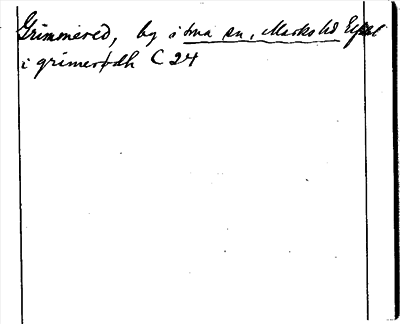 Grimmered, by i Ama sn, Marks hd Egen
i grimerødh C 24